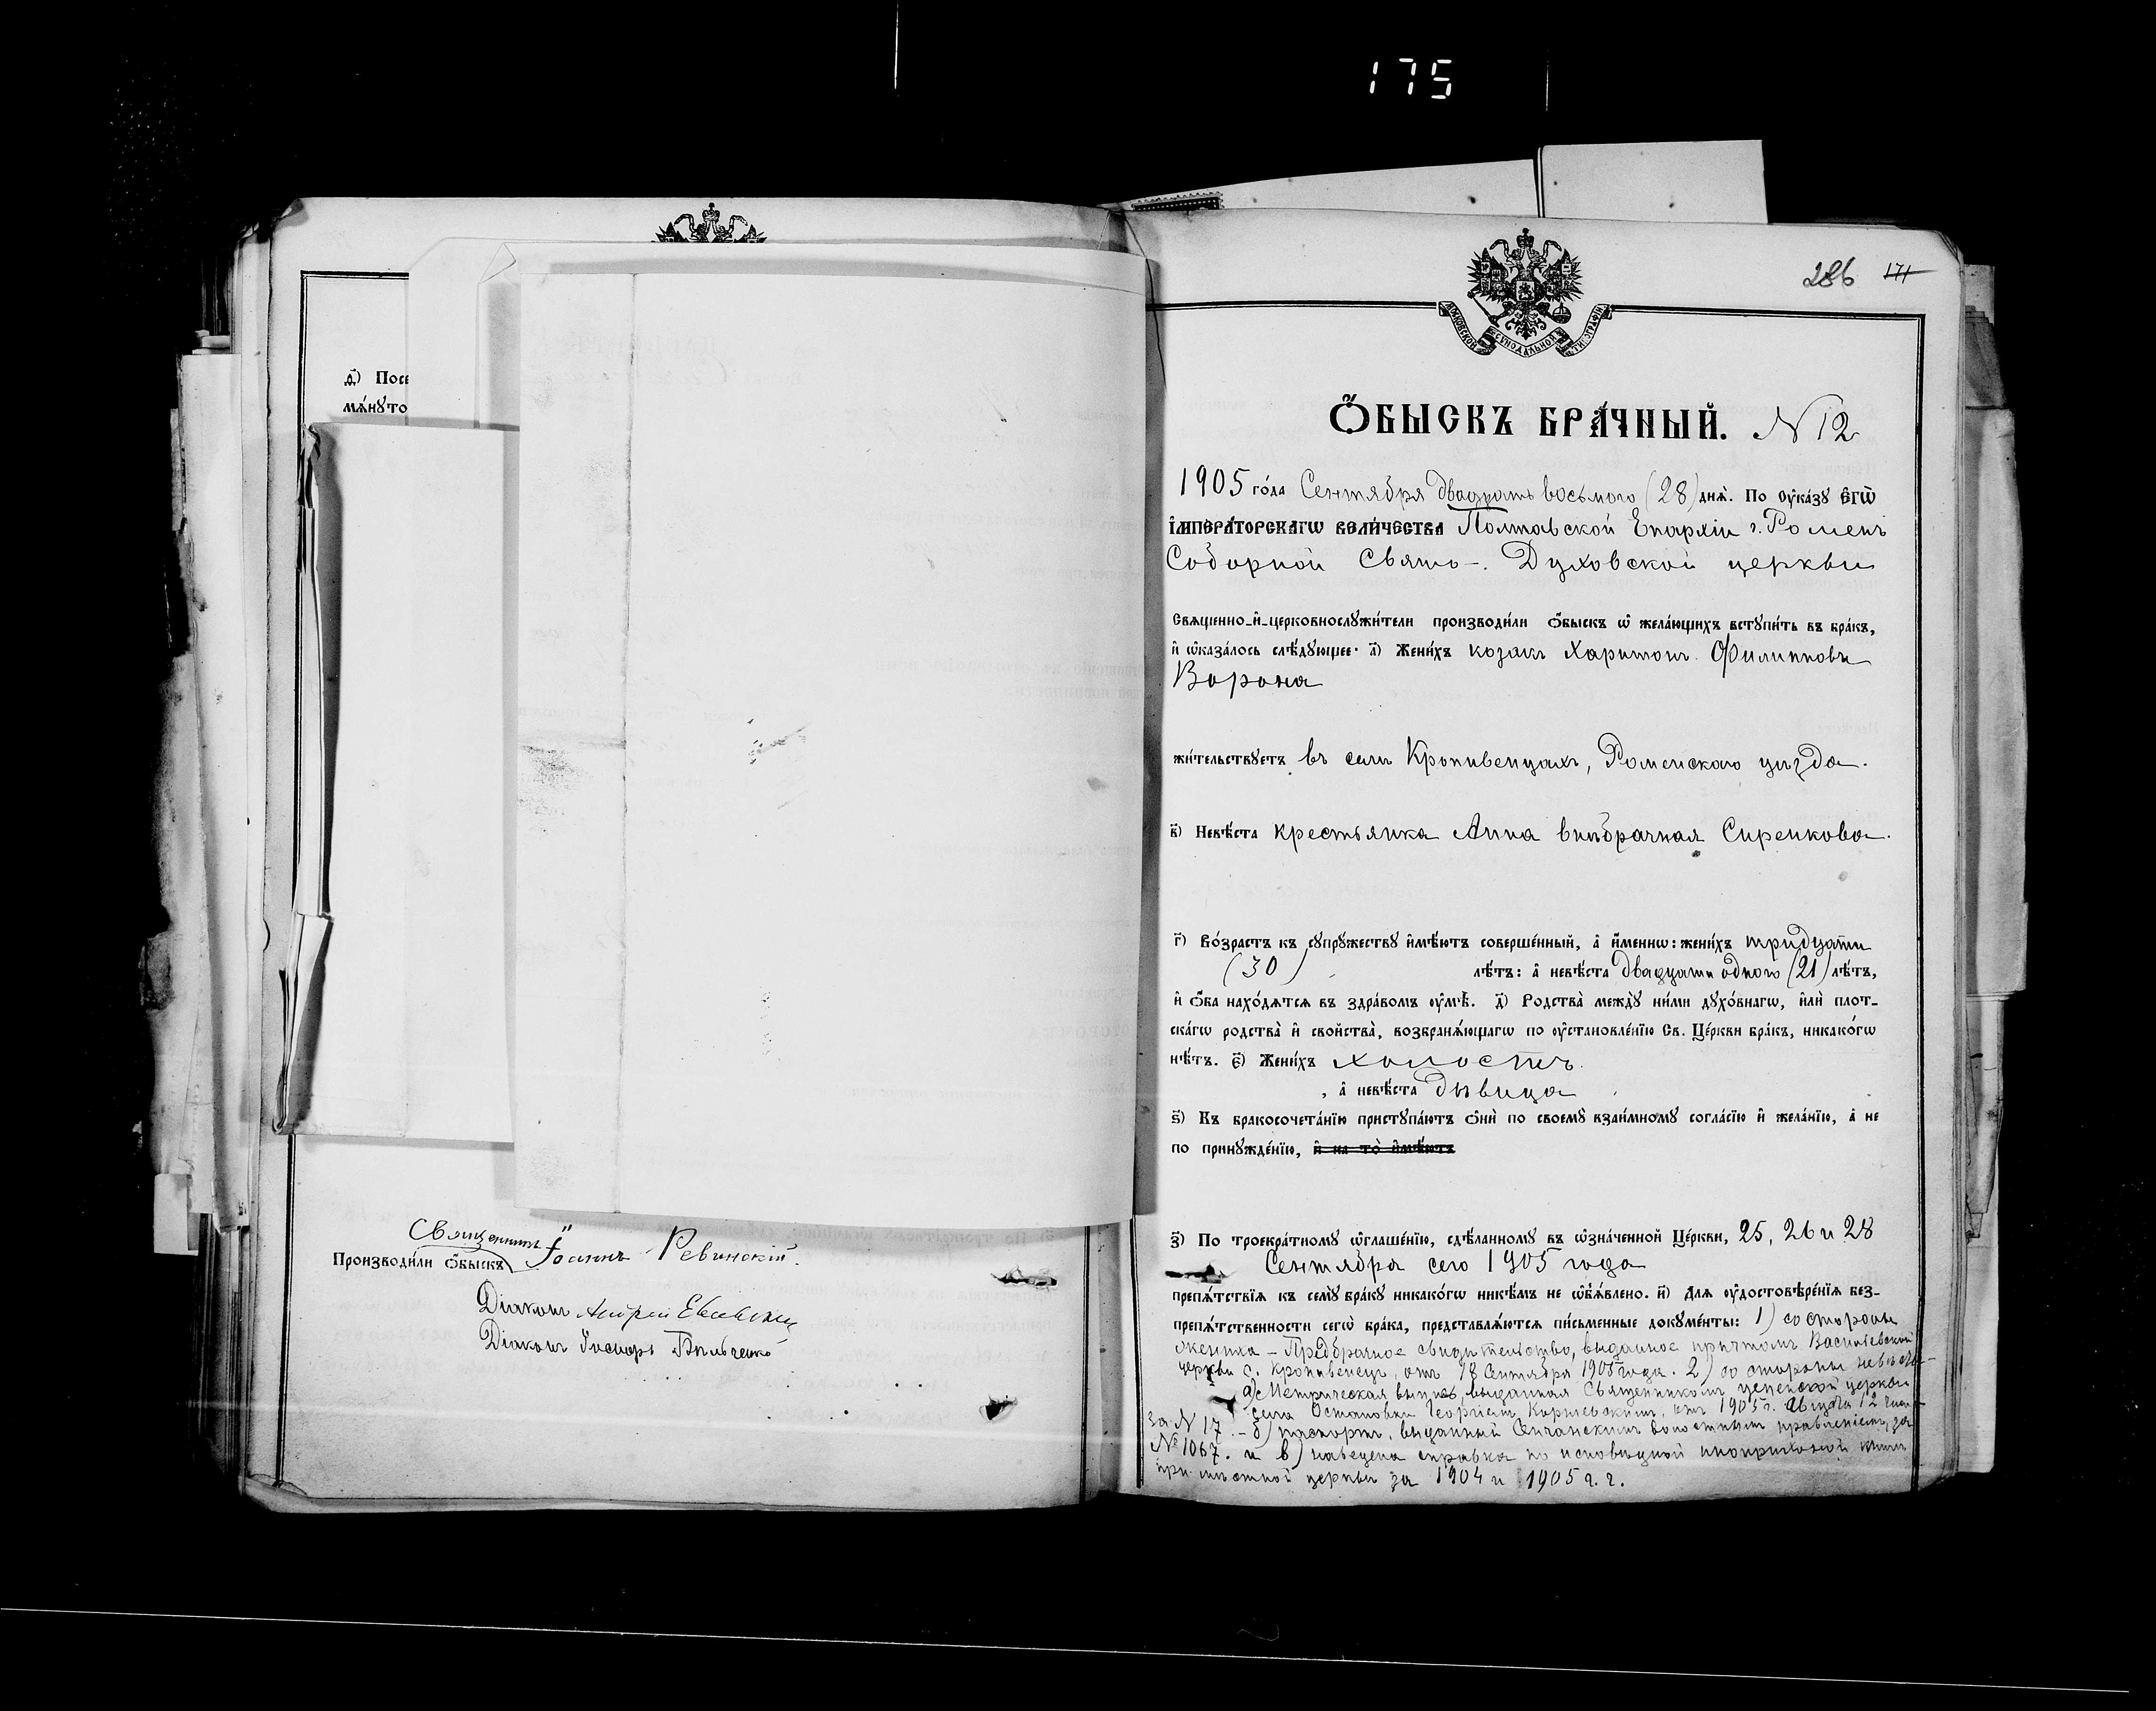 175
д҃) Посе
мѧ́нꙋто
Священникъ Іоаннъ Ревинскій.
Производи́ли ѻ҆́быскъ
Діаконъ Андрей
Діаконъ
286 171
МОСКОВСКОЙ СѴНОДАЛЬНОЙ ТИПОГРАФІИ
Ѻ҆́БЫСКЪ БРА́ЧНЫЙ. N 12
1905 го́да Сентября двадцать восьмого (28) днѧ̀. По ᲂу҆ка́зꙋ Є҆ГѠ̀
І҆МПЕРА́ТОРСКАГѠ ВЕЛИ́ЧЕСТВА Полтавской Епархіи г. Роменъ
Соборной Свято-Духовской церкви
Свѧще́нно-и҆-церковнослꙋжи́тели производи́ли ѻ҆́быскъ ѡ҆ жела́ющихъ встꙋпи́ть въ бра́къ,
и҆ ѡ҆каза́лось слѣ́дꙋющее: а҃) Жени́хъ козакъ Харитонъ Филипповъ
Ворона
жи́тельствꙋетъ въ селѣ Кропивенцахъ, Роменскаго уѣзда.
в҃) Невѣ́ста крестьянка Анна внѣбрачная Сиренкова.
г҃) Во́зрастъ къ сꙋпрꙋ́жествꙋ и҆мѣ́ютъ соверше́нный, а҆ и҆́менно: жени́хъ тридцати
(30) лѣ́тъ: а҆ невѣ́ста двадцати одного (21) лѣ́тъ,
и҆ ѻ҆́ба нахо́дѧтсѧ въ здра́вомъ ᲂу҆мѣ̀. д҃) Родства̀ междꙋ̀ ни́ми дꙋхо́внагѡ, и҆лѝ плот-
ска́гѡ родства̀ и҆ сво́йства, возбранѧ́ющагѡ по ᲂу҆становле́нїю Св. Це́ркви бра́къ, никако́гѡ
нѣ́тъ. є҃) Жени́хъ холостъ.
, а҆ невѣ́ста дѣвица
ѕ҃) Къ бракосочета́нїю пристꙋпа́ютъ ѻ҆нѝ по своемꙋ̀ взаи́мномꙋ согла́сїю и҆ жела́нїю, а҆ не
по принꙋжде́нїю, и҆ на то̀ и҆мѣ́ютъ
з҃) По троекра́тномꙋ ѡ҆глаше́нїю, сдѣ́ланномꙋ въ ѡ҆зна́ченной Це́ркви, 25, 26 и 28
Сентября сего 1905 года
препѧ́тствїѧ къ семꙋ̀ бра́кꙋ никако́гѡ никѣ́мъ не ѡ҆б̾ѧ́влено. и҃) Длѧ ᲂу҆достовѣре́нїѧ без-
препѧ́тственности сегѡ̀ бра́ка, представлѧ́ютсѧ пи́сьменные докꙋме́нты: 1) со стороны
жениха – Предбрачное свидѣтельство, выданное причтомъ Васильевской
церкви с. Кропивенецъ, отъ 18 Сентября 1905 года. 2) со стороны невѣсты –
а) Метрическая выпись, выданная Священникомъ успенской церкви
села Остановки Георгіемъ, отъ 1905 г. Августа 12 дня
за N 17. – б) паспортъ, выданный Сенчанскимъ волостнымъ правленіемъ, за
№ 1067. и в) наведена справка по исповѣдной книгѣ
при мѣстной церкви за 1904 и 1905 г. г.